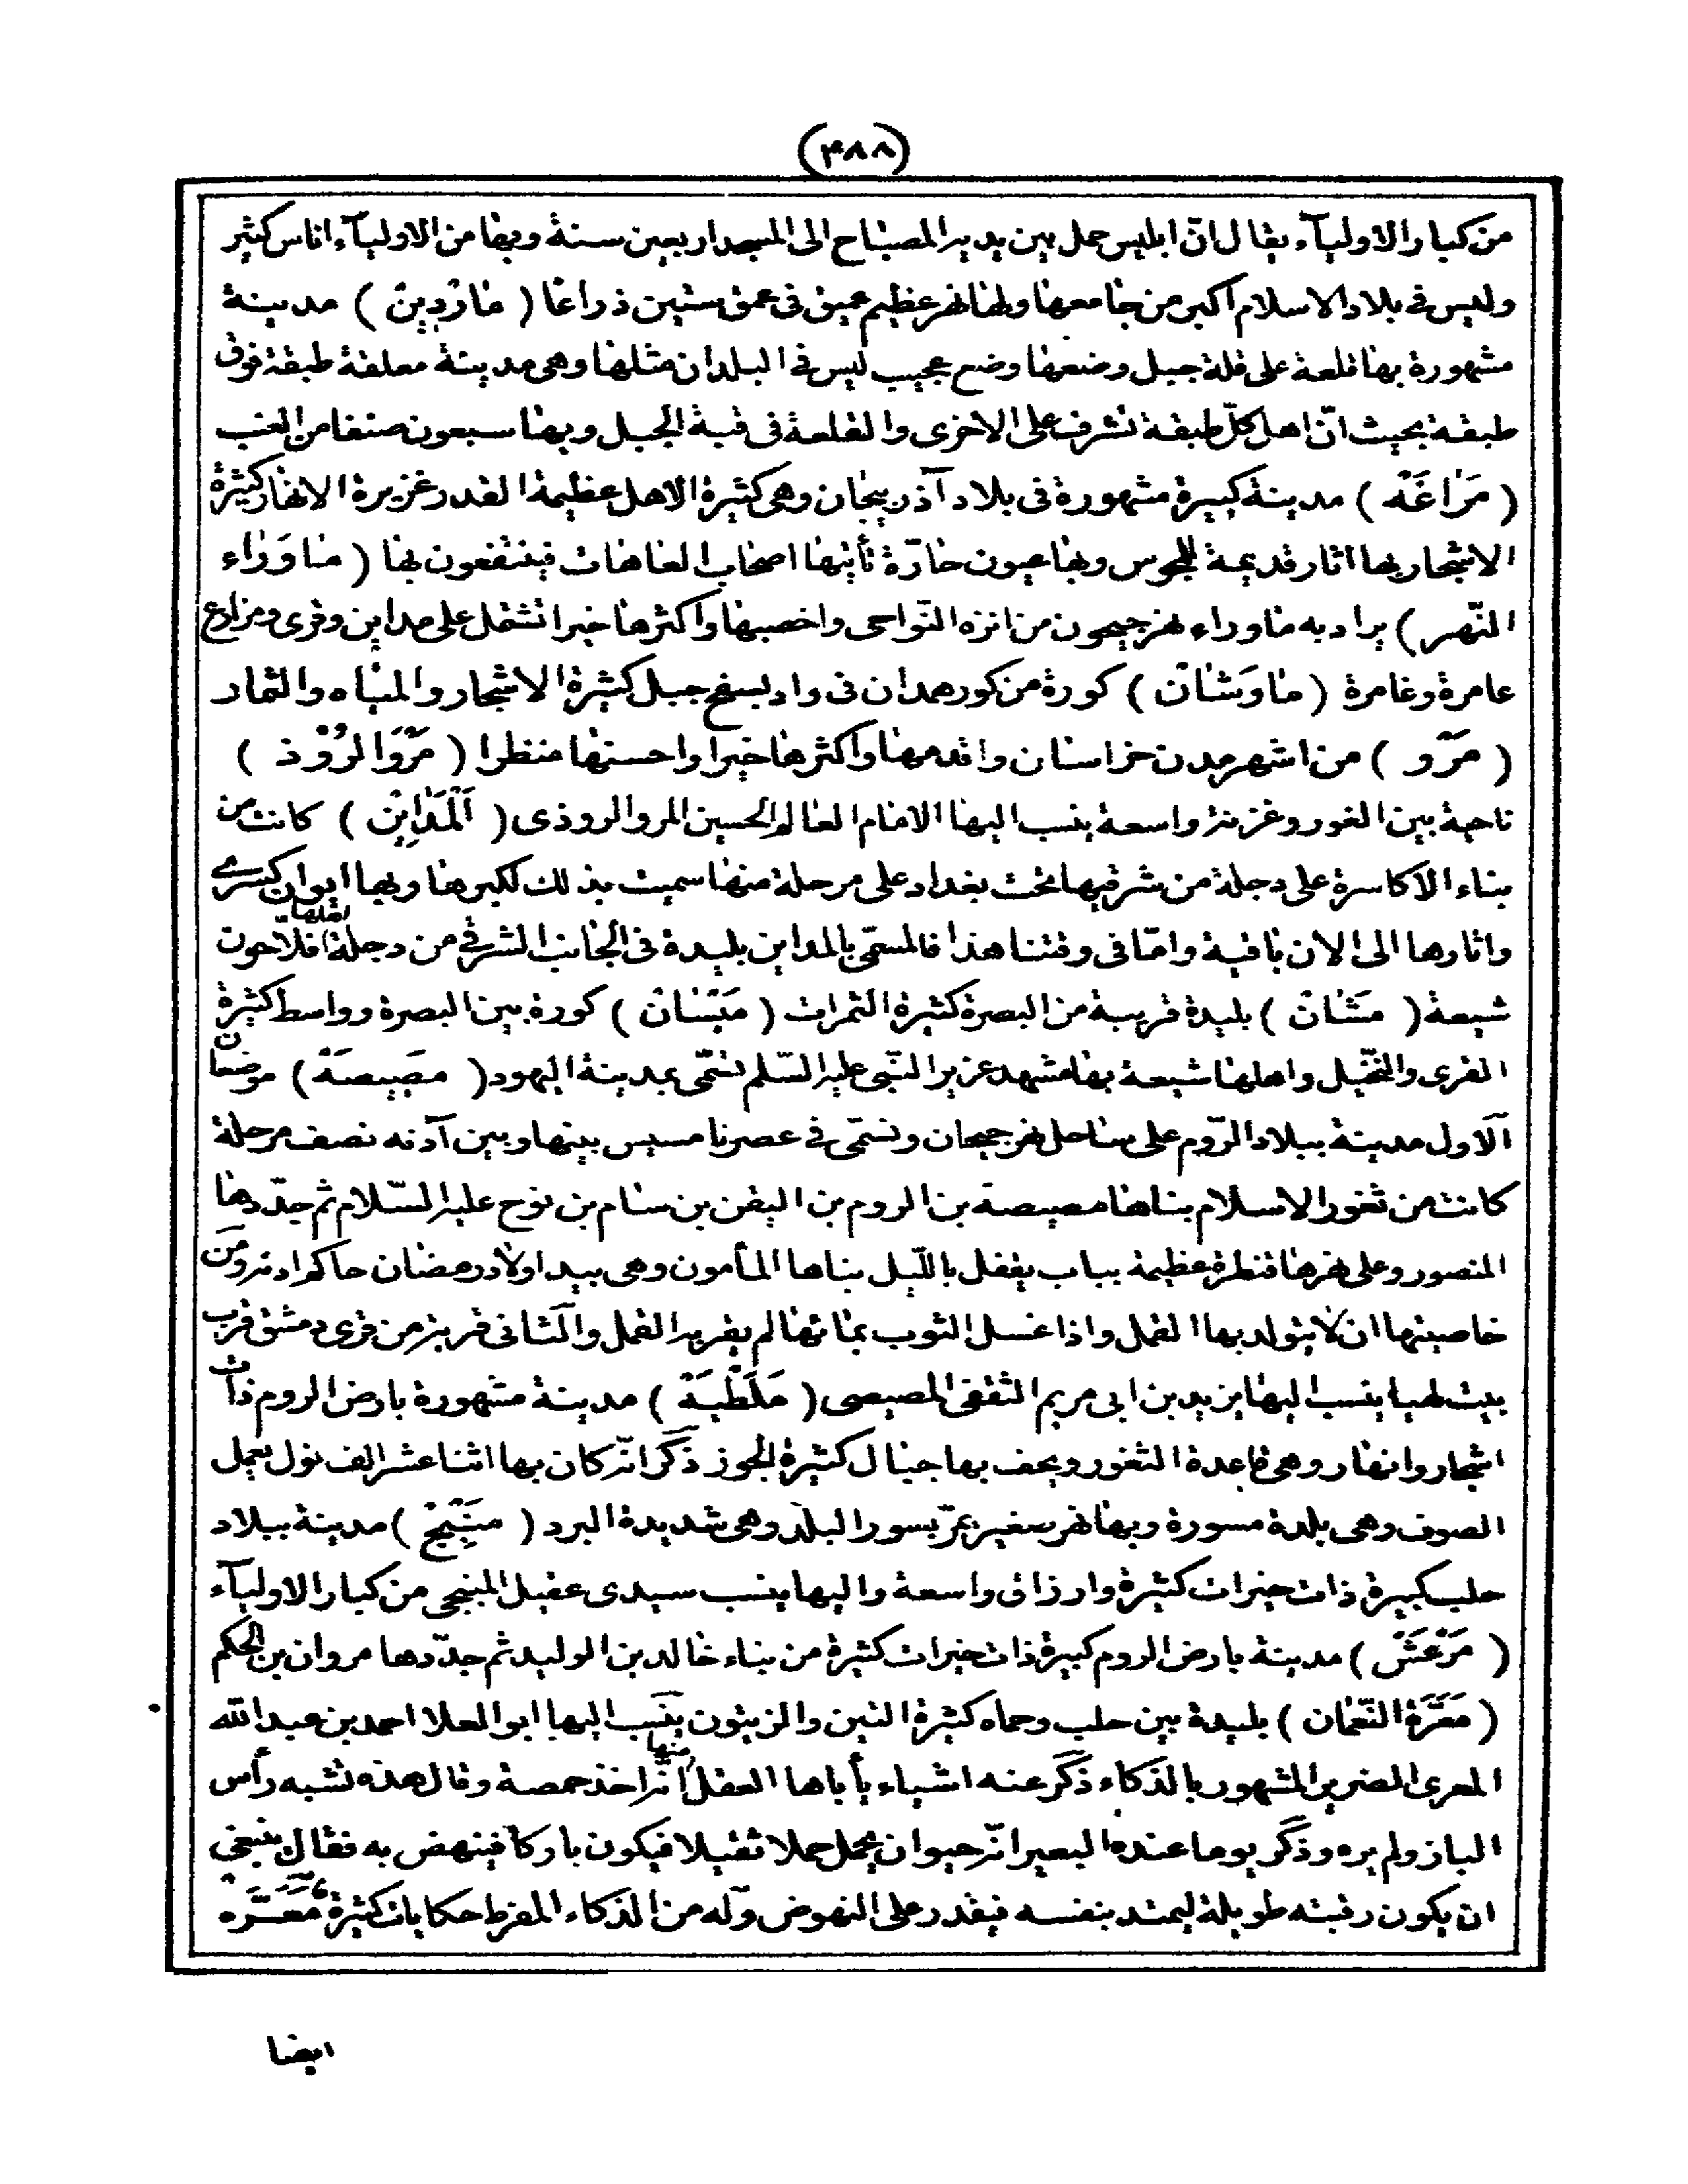 (٣٨٨)
من كبار الاوليآء يقال انّ ابليس حمل بين يديه المصباح الى المسجد اربعين سنة وبها من الاوليآء اناس كثير
وليس فى بلاد الاسلام اكبر من جامعها ولها نهر عظيم عميق فى عمق ستين ذراعا ( مَارْدِين ) مدينة
مشهورة بها قلعة على قلة جبل وضعها وضع عجيب ليس فى البلدان مثلها وهى مدينة معلقة طبقة فوق
طبقة بحيث انّ اهل كلّ طبقة تشرف على الاخرى والقلعة فى قبة الجبل وبها سبعون صنفا من العنب
( مَرَاغَهْ ) مدينة كبيرة مشهورة فى بلاد آذربيجان وهى كثيرة الاهل عظيمة القدر غزيرة الانهار كثيرة
الاشجار بها اثار قديمة للمجوس وبها عيون حارّة تأتيها اصحاب العاهات فينتفعون بها ( مَا وَرَاء
النّهر ) يراد به ماوراء نهر جيحون من انزه النّواحى واخصبها واكثرها خيرا تشتمل على مداين وقرى ومزارع
عامرة وغامرة ( مَاوَشَانْ ) كورة من كور همدان فى واد بسفح جبل كثيرة الاشجار والمياه والثمار
( مَرْو ) من اشهر مدن خراسان واقدمها واكثرها خيرا واحسنها منظرا ( مَرْوَالرُوْذ )
ناحية بين الغور وغزنة واسعة ينسب اليها الامام العالم الحسين المروالروذى ( اَلْمَدَايِنْ ) كانت من
بناء الاكاسرة على دجلة من شرقيها تحت بغداد على مرحلة منها سميت بذلك لكبرها وبها ايوان كسرى
واثارها الى الان باقية وامّا فى وقتنا هذا فالمسمّى بالمداين بليدة فى الجانب الشرقى من دجلة اهلها فلاحون
شيعة ( مَشَانْ ) بليدة قريبة من البصرة كثيرة الثمرات ( مَيْسَانْ ) كورة بين البصرة وواسط كثيرة
القرى والنخيل واهلها شيعة بها مشهد عزير النّبى عليه السّلم تسمّى بمدينة اليهود ( مَصِيصَهْ ) موضعان
آلاول مدينة ببلاد الرّوم على ساحل نهر جيحان وتسمّى فى عصرنا مسيس بينها وبين آدنه نصف مرحلة
كانت من ثغور الاسلام بناها مصيصة بن الروم بن اليقن بن سام بن نوح عليه السّلام ثم جدّدها
المنصور وعلى نهرها قنطرة عظيمة بباب يقفل بالليل بناها المأمون وهى بيد اولاد رمضان حاكم ادنه ومن
خاصيتها ان لا يتولد بها القمل واذا غسل الثوب بمائها لم يقربه القمل والثانى قرية من قرى دمشق قرب
بيت لهيا ينسب اليها يزيد بن ابى مريم الثقفى المصيصى ( مَلَطْيَهْ ) مدينة مشهورة بارض الروم ذات
اشجار وانهار وهى قاعدة الثغور ويحف بها جبال كثيرة الجوز ذكر انّه كان بها اثنا عشر الف نول يعمل
الصوف وهى بلدة مسورة وبها نهر صغير يمرّ بسور البلد وهى شديدة البرد ( مَنْبِجْ ) مدينة ببلاد
حلب كبيرة ذات خيرات كثيرة وارزاق واسعة واليها ينسب سيدى عقيل المنبجى من كبار الاوليآء
( مَرْعَشْ ) مدينة بارض الروم كبيرة ذات خيرات كثيرة من بناء خالد بن الوليد ثم جدّدها مروان بن الحكم
( مَعَرَّةُ النّعْمَان ) بليدة بين حلب وحماه كثيرة التين والزيتون ينسب اليها ابو العلا احمد بن عبدالله
المعرى الضرير المشهور بالذكاء ذكر عنه اشياء يأباها العقل منها انّه اخذ حمصة وقال هذه تشبه رأس
الباز ولم يره وذكر يوما عنده البعير انّه حيوان يحمل حملا ثقيلا فيكون باركا فينهض به فقال ينبغى
ان يكون رقبته طويلة ليمتد بنفسه فيقدر على النهوض وله من الذكاء المفرط حكايات كثيرة مَعَرَّه
ايضا